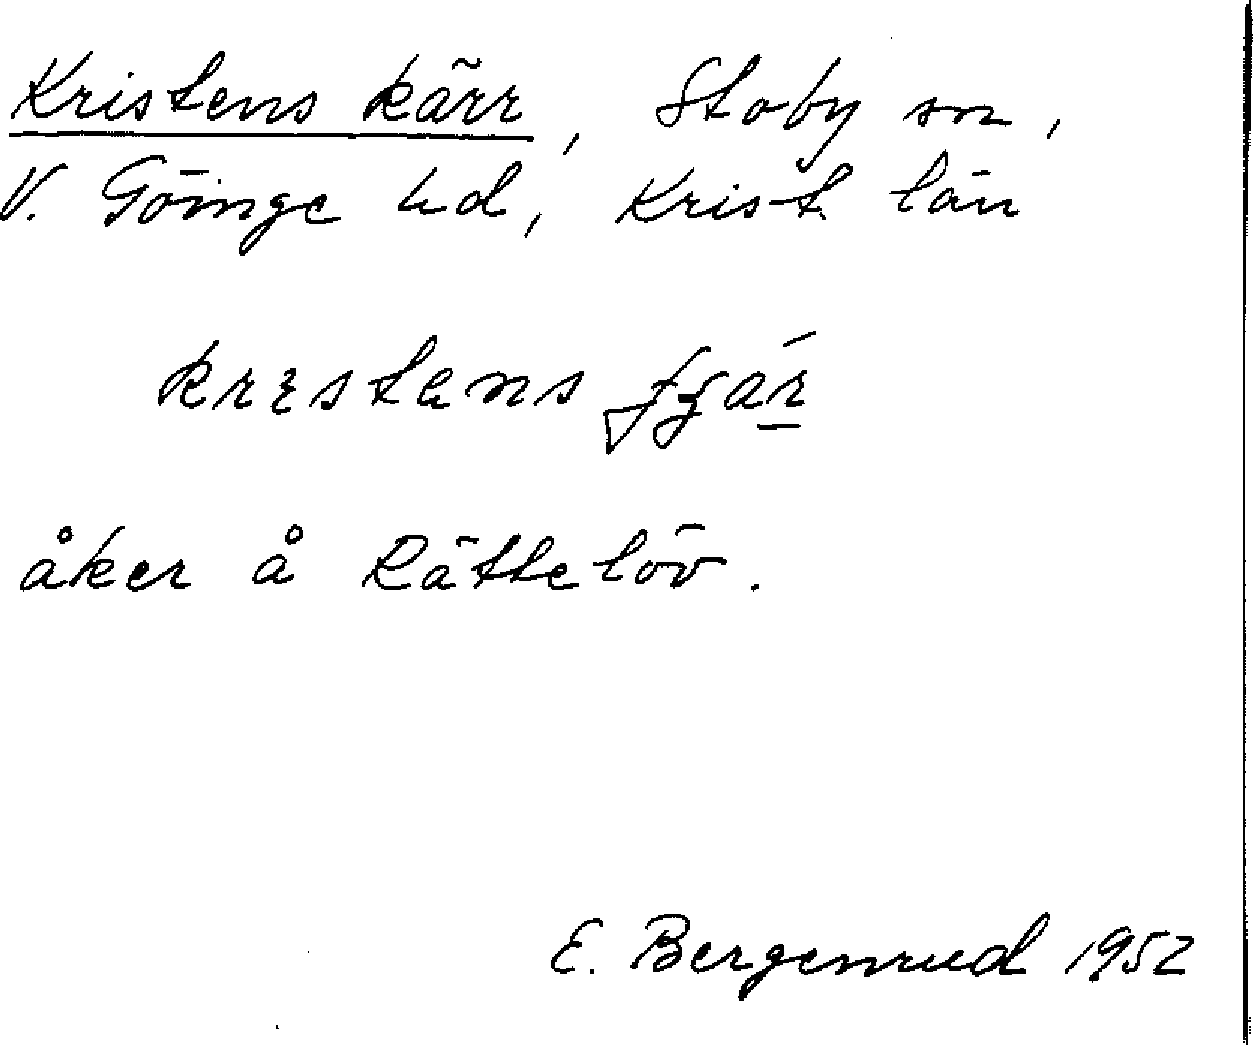 Kristens kärr, Stoby sn,
V. Göinge hd, Krist. län
åker å Rättelöv.
E. Bergenrud 1952